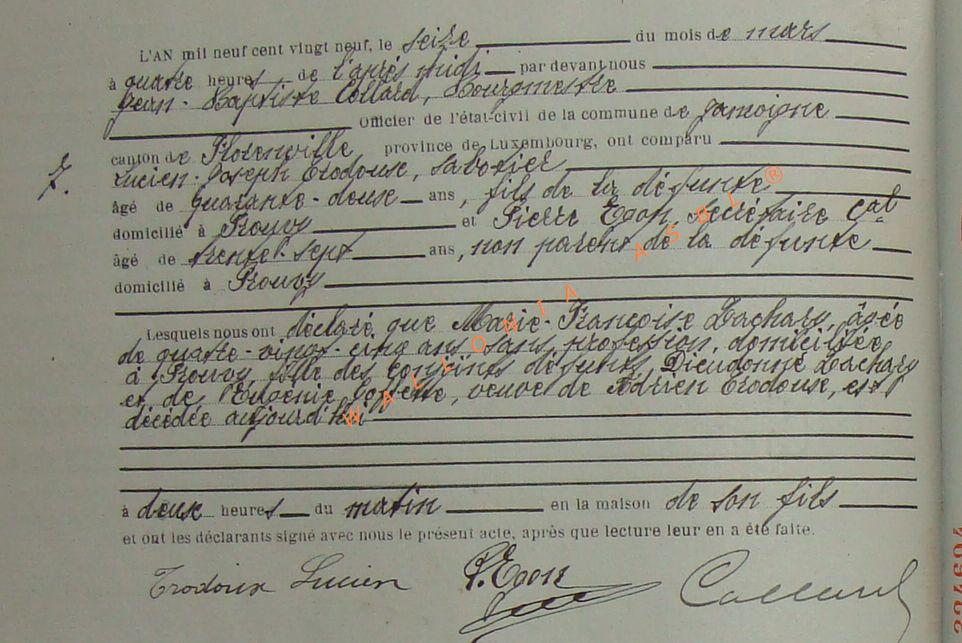 L'AN mil neuf cent vingt neuf, le seize du mois de mars
à quatre heures de l'après midi par devant nous
Jean-Baptiste Collard, Bourgmestre
Officier de l'état-civil de la commune de Jamoigne
canton de Florenville province de Luxembourg, ont comparu
7.
Lucien-Joseph Trodoux, sabotier
âgé de quarante-deux ans, fils de la défunte
domicilié à Prouvy et Pierre Egon, secrétaire cal
âgé de trente-sept ans, non parent de la défunte
domicilié à Prouvy
Lesquels nous ont déclaré que Marie-Françoise Zachary, âgée
de quatre-vingt-cinq ans sans profession, domiciliée
à Prouvy, fille des conjoints défunts, Dieudonné Zachary
et de Eugénie, veuve de Adrien Trodoux, est
décédée aujourd'hui
à deux heures du matin en la maison de son fils
et ont les déclarants signé avec nous le présent acte, après que lecture leur en a été faite.
Trodoux Lucien P. Egon Collard
WALLONIA ASBL ®
324694